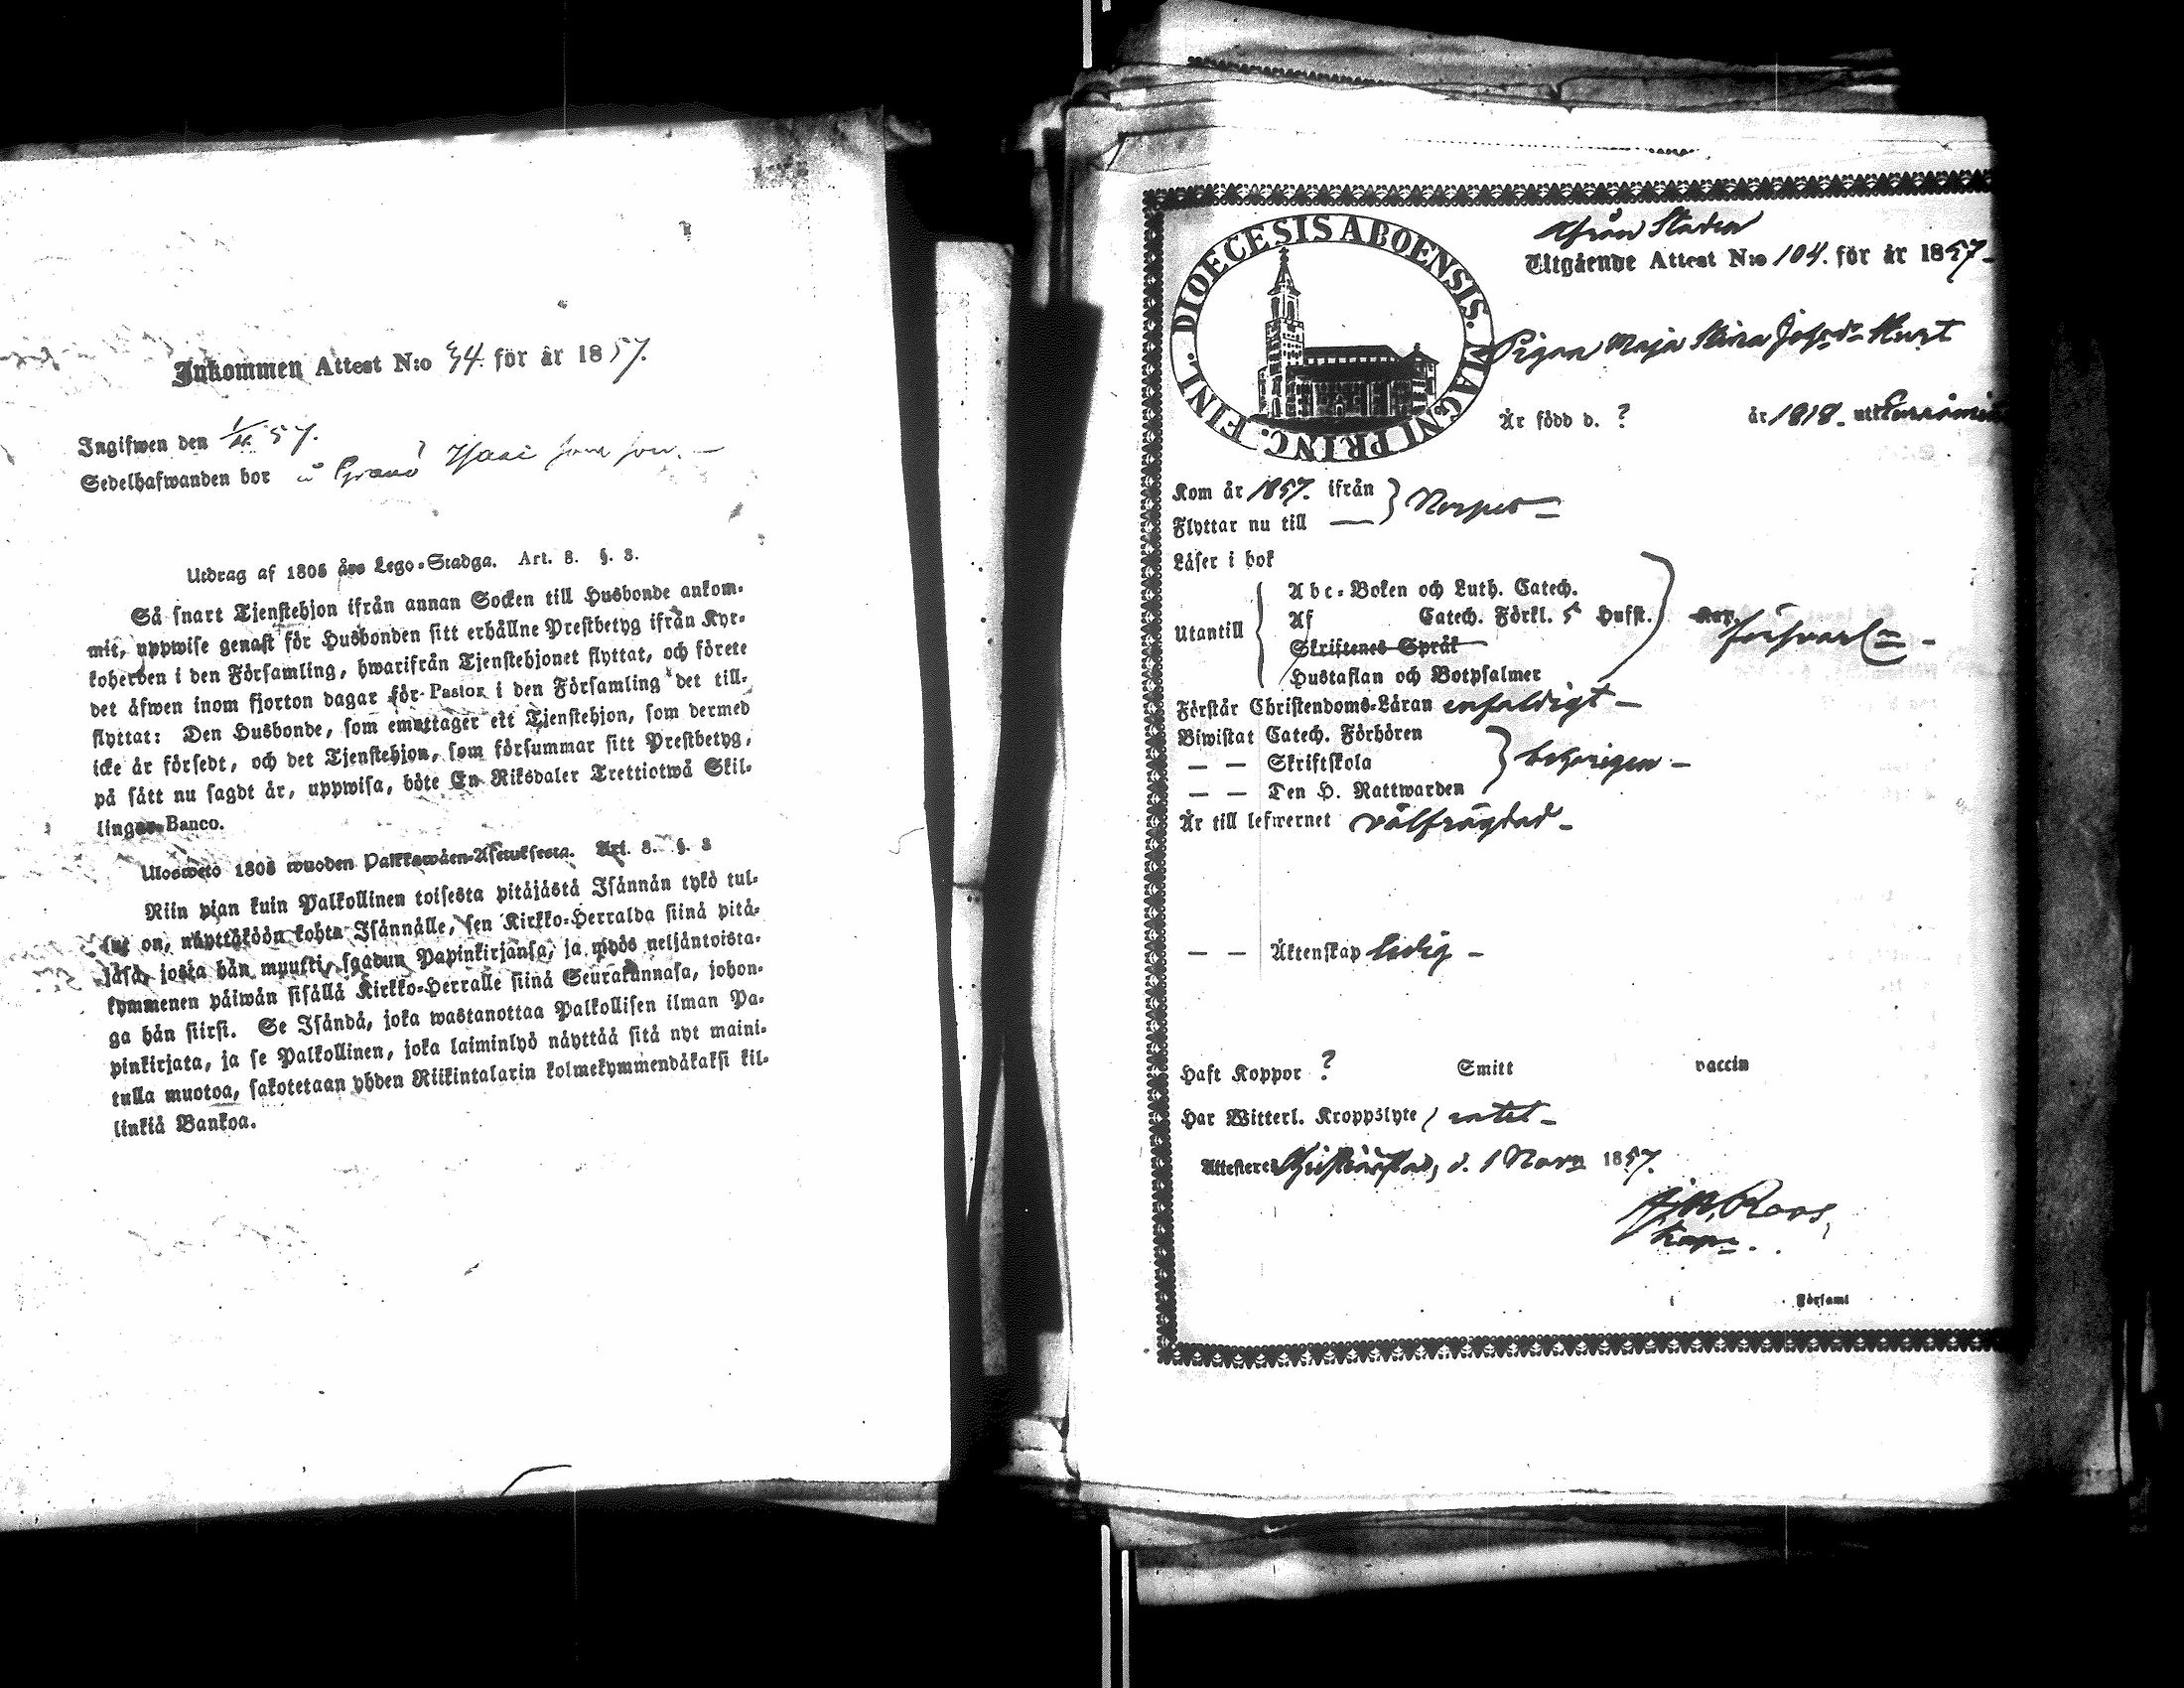 Inkommen Attest N:o 34. för år 1857.
Ingifwen den 1/11 57.
Sedelhafwanden bor
Utdrag af 1805 års Lego-Stadga. Art. 8. §. 8.
Så snart Tjenstehjon ifrån annan Socken till Husbonde ankom-
mit, uppwise genast för Husbonden sitt erhållne Prestbetyg ifrån Kyr-
koherden i den Församling, hwarifrån Tjenstehjonet flyttat, och förete
det äfwen inom fjorton dagar för Pastor i den Församling det till-
flyttat: Den Husbonde, som emottager ett Tjenstehjon, som dermed
icke är försedt, och det Tjenstehjon, som försummar sitt Prestbetyg,
på sätt nu sagdt är, uppwisa, böte En Riksdaler Trettiotwå Skil-
lingar Banco.
Ulosweto 1805 wuoden Palkkawäen-Asetuksesta. Art. 8. §. 8
Niin pian kuin Palkollinen toisesta pitäjästä Isännän tykö tul-
lut on, näyttäköön kohta Isännälle, sen Kirkko-Herralda siinä pitä-
jäsä, josta hän muutti, saadun Papinkirjansa, ja myös neljäntoista-
kymmenen päiwän sisällä Kirkko-Herralle siinä Seurakunnasa, johon-
ga hän siirsi. Se Isändä, joka wastanottaa Palkollisen ilman Pa-
pinkirjata, ja se Palkollinen, joka laiminlyö näyttää sitä nyt maini-
tulla muotoa, sakotetaan yhden Riikintalarin kolmekymmendäkaksi kil-
linkiä Bankoa.
DIOECESIS ABOENSIS. MAGNI PRINC. FINL.
Ifrån Staden
Utgående Attest N:o 104. för år 1857-
Pigan Maja Stina Johsdr Kurt
Är född d. ? år 1818. uti
Kom år 1857. ifrån } Nerpes -
Flyttar nu till —
Läser i bok
Utantill { Abc-Boken och Luth. Catech.
Af Catech. Förkl. 5 Hufst.
Skriftenes Språk
Hustaflan och Botpsalmer
försvarl -
Förstår Christendoms-Läran enfaldigt -
Biwistat Catech. Förhören
— — Skriftskola } behörigen -
— — Den H. Nattwarden
Är till lefwernet välfrägdad -
— — Äktenskap ledig -
Haft Koppor ? Smitt vaccin
Har Witterl. Kroppslyte / intet -
Attesteres Christinestad, d. 1 Novr 1857.
Roos,
Kapn.
i Församl